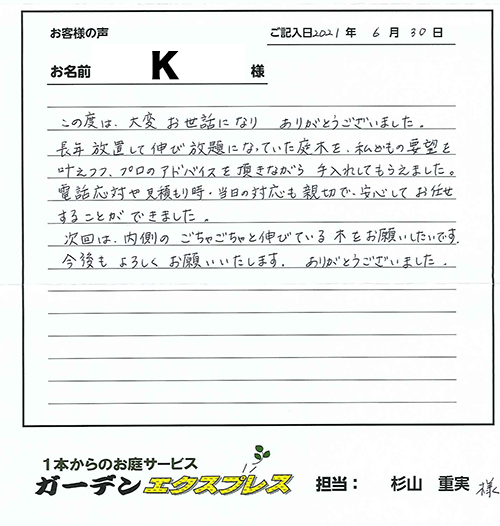 お客様の声
ご記入日2021年 6月 30日
お名前 K 様
この度は、大変 お世話になり ありがとうございました。
長年 放置して伸び放題になっていた庭木を、私どもの要望を
叶えつつ、プロのアドバイスを頂きながら 手入れしてもらえました。
電話応対や見積もり時・当日の対応も 親切で、安心して お任せ
することが できました。
次回は、内側の ごちゃごちゃと伸びている 木をお願いしたいです。
今後も よろしく お願いいたします。 ありがとうございました。
1本からのお庭サービス
ガーデンエクスプレス 担当: 杉山 重実 様